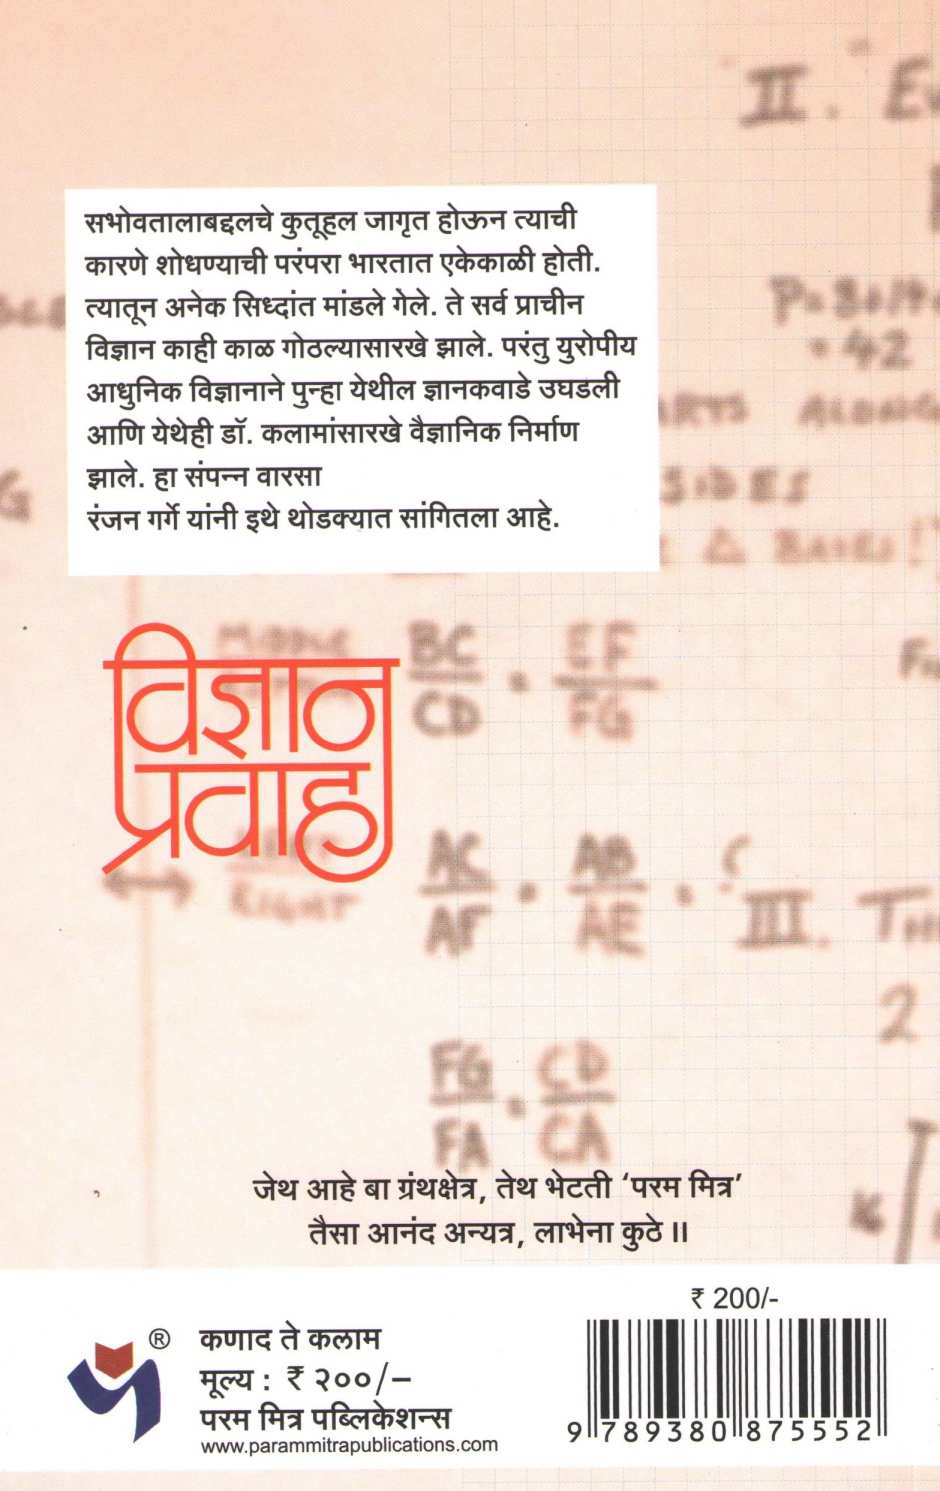 II.
P=30/14
= 42
ARTS ALONG
SIDES
G
△ BASES!
सभोवतालाबद्दलचे कुतूहल जागृत होऊन त्याची
कारणे शोधण्याची परंपरा भारतात एकेकाळी होती.
त्यातून अनेक सिध्दांत मांडले गेले. ते सर्व प्राचीन
विज्ञान काही काळ गोठल्यासारखे झाले. परंतु युरोपीय
आधुनिक विज्ञानाने पुन्हा येथील ज्ञानकवाडे उघडली
आणि येथेही डॉ. कलामांसारखे वैज्ञानिक निर्माण
झाले. हा संपन्न वारसा
रंजन गर्गे यांनी इथे थोडक्यात सांगितला आहे.
BC EF
CD FG
विज्ञान
प्रवाह
AC AB
AF AE
RIGHT
III.
2
FG CD
FA CA
जेथ आहे बा ग्रंथक्षेत्र, तेथ भेटती ‘परम मित्र’
तैसा आनंद अन्यत्र, लाभेना कुठे ॥
₹ 200/-
®
कणाद ते कलाम
मूल्य : ₹ २००/–
परम मित्र पब्लिकेशन्स
www.parammitrapublications.com
9 789380 875552